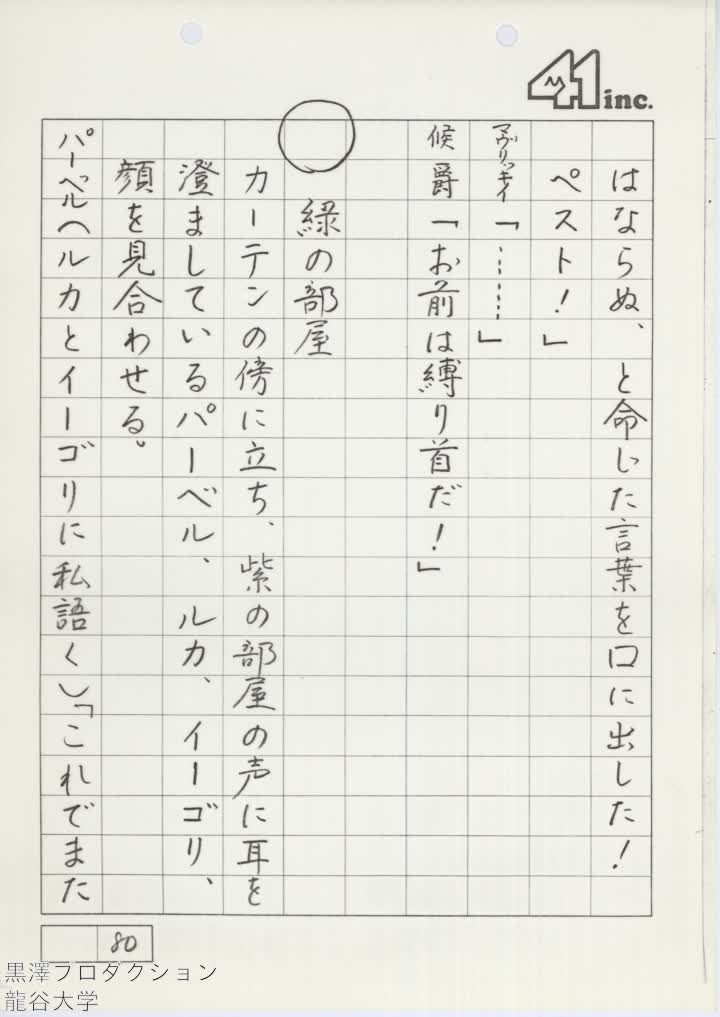 41 inc.
はならぬ、と命じた言葉を口に出した!
ペスト!」
マヴリッキイ「……」
候爵「お前は縛り首だ!」
○
緑の部屋
カーテンの傍に立ち、紫の部屋の声に耳を
澄ましているパーベル、ルカ、イーゴリ、
顔を見合わせる。
パーベル(ルカとイーゴリに私語く)「これでまた
80
黒澤プロダクション
龍谷大学